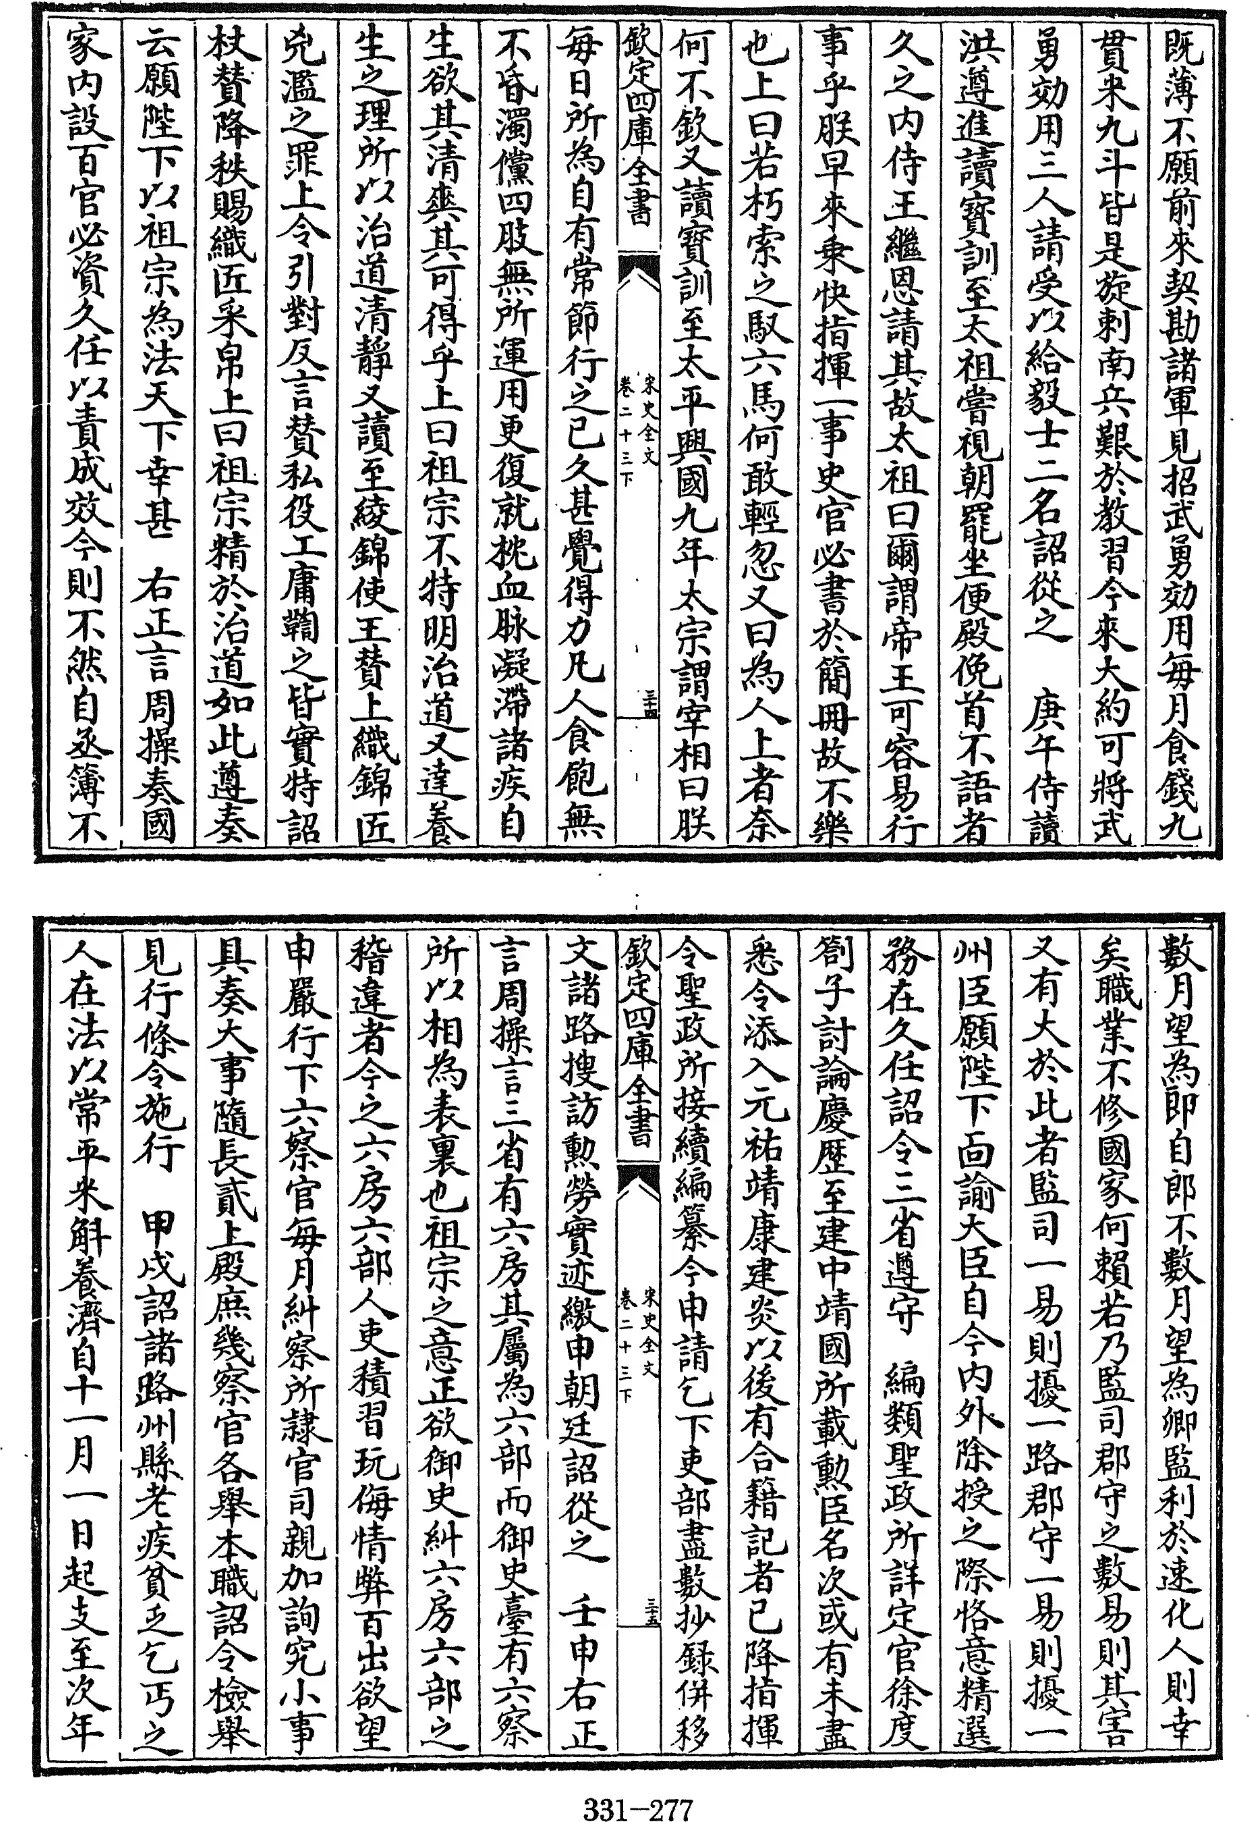 既薄不願前來契勘諸軍見招武勇効用每月食錢九
貫米九斗皆是旋刺南兵艱於教習今來大約可將武
勇効用三人請受以給毅士二名詔從之　庚午侍讀
洪遵進讀寳訓至太祖嘗視朝罷坐便殿俛首不語者
久之内侍王繼恩請其故太祖曰爾謂帝王可容易行
事乎朕早來乗快指揮一事史官必書於簡冊故不樂
也上曰若朽索之馭六馬何敢輕忽又曰為人上者奈
何不欽又讀寳訓至太平興國九年太宗謂宰相曰朕
欽定四庫全書
宋史全文
卷二十三下
三十四
每日所為自有常節行之已久甚覺得力凡人食飽無
不昏濁儻四肢無所運用更復就枕血脉凝滯諸疾自
生欲其清爽其可得乎上曰祖宗不特明治道又達養
生之理所以治道清靜又讀至綾錦使王贊上織錦匠
兇濫之罪上令引對反言贊私役工庸鞫之皆實特詔
杖贊降秩賜織匠采帛上曰祖宗精於治道如此遵奏
云願陛下以祖宗為法天下幸甚　右正言周操奏國
家内設百官必資久任以責成效今則不然自丞簿不
數月望為郎自郎不數月望為卿監利於速化人則幸
矣職業不修國家何賴若乃監司郡守之數易則其害
又有大於此者監司一易則擾一路郡守一易則擾一
州臣願陛下面諭大臣自今内外除授之際恪意精選
務在久任詔令三省遵守　編類聖政所詳定官徐度
劄子討論慶歴至建中靖國所載勲臣名次或有未盡
悉令添入元祐靖康建炎以後有合籍記者已降指揮
令聖政所接續編纂今申請乞下吏部盡數抄録併移
欽定四庫全書
宋史全文
卷二十三下
三十五
文諸路搜訪勲勞實迹繳申朝廷詔從之　壬申右正
言周操言三省有六房其屬為六部而御史臺有六察
所以相為表裏也祖宗之意正欲御史糾六房六部之
稽違者今之六房六部人吏積習玩侮情弊百出欲望
申嚴行下六察官每月糾察所隷官司親加詢究小事
具奏大事隨長貳上殿庶幾察官各舉本職詔令檢舉
見行條令施行　甲戌詔諸路州縣老疾貧乏乞丐之
人在法以常平米斛養濟自十一月一日起支至次年
331-277